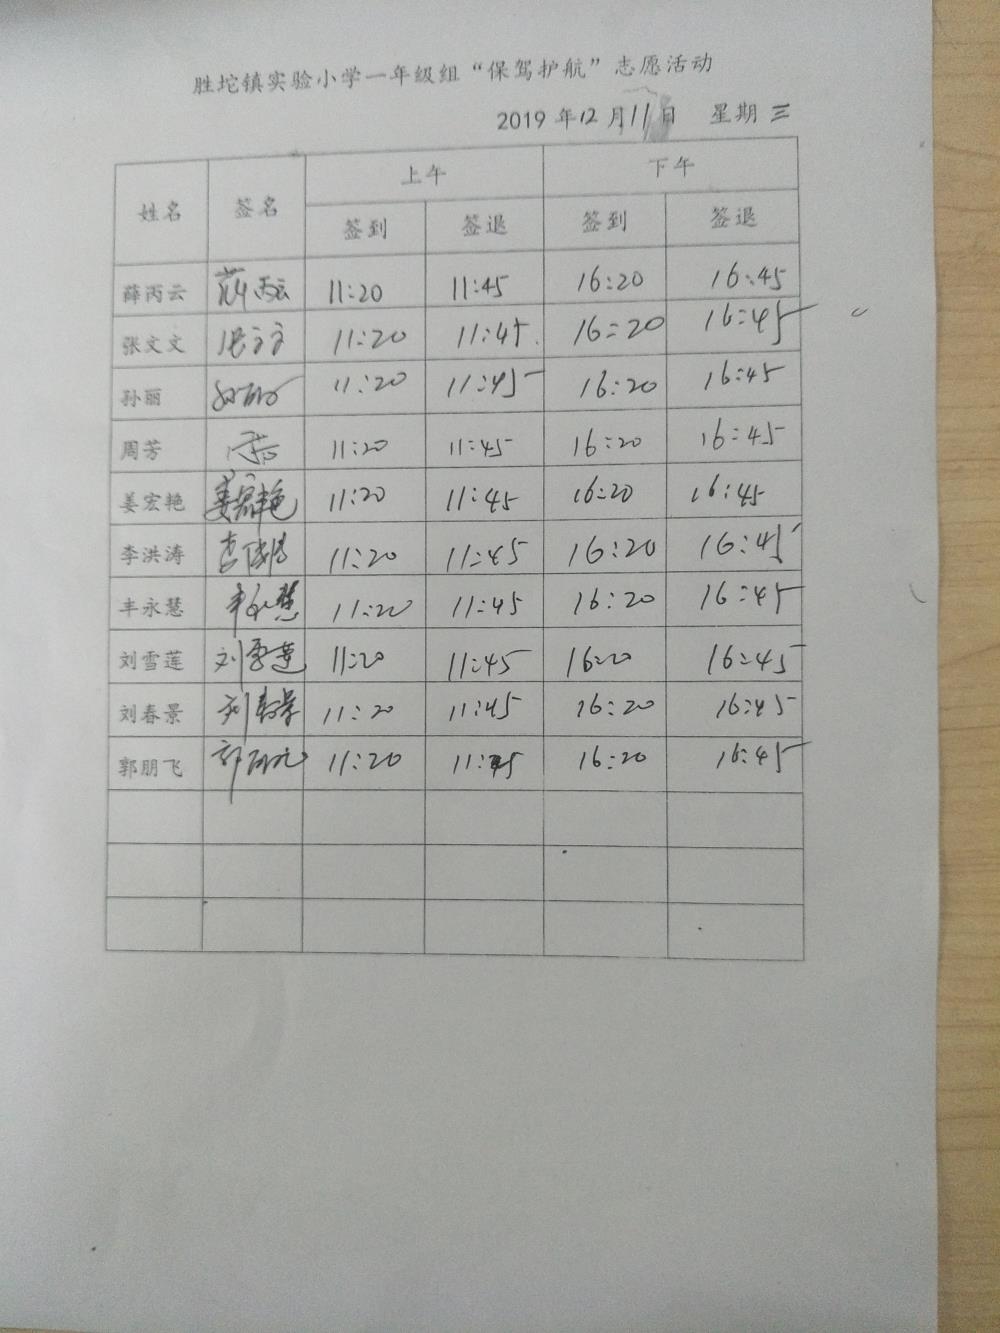 胜坨镇实验小学一年级组“保驾护航”志愿活动
2019年12月11日 星期三
姓名 签名 上午 下午
签到 签退 签到 签退
薛丙云 薛丙云 11:20 11:45 16:20 16:45
张文文 张文文 11:20 11:45 16:20 16:45
孙丽 孙丽 11:20 11:45 16:20 16:45
周芳 周芳 11:20 11:45 16:20 16:45
姜宏艳 姜宏艳 11:20 11:45 16:20 16:45
李洪涛 李洪涛 11:20 11:45 16:20 16:45
丰永慧 丰永慧 11:20 11:45 16:20 16:45
刘雪莲 刘雪莲 11:20 11:45 16:20 16:45
刘春景 刘春景 11:20 11:45 16:20 16:45
郭朋飞 郭朋飞 11:20 11:45 16:20 16:45